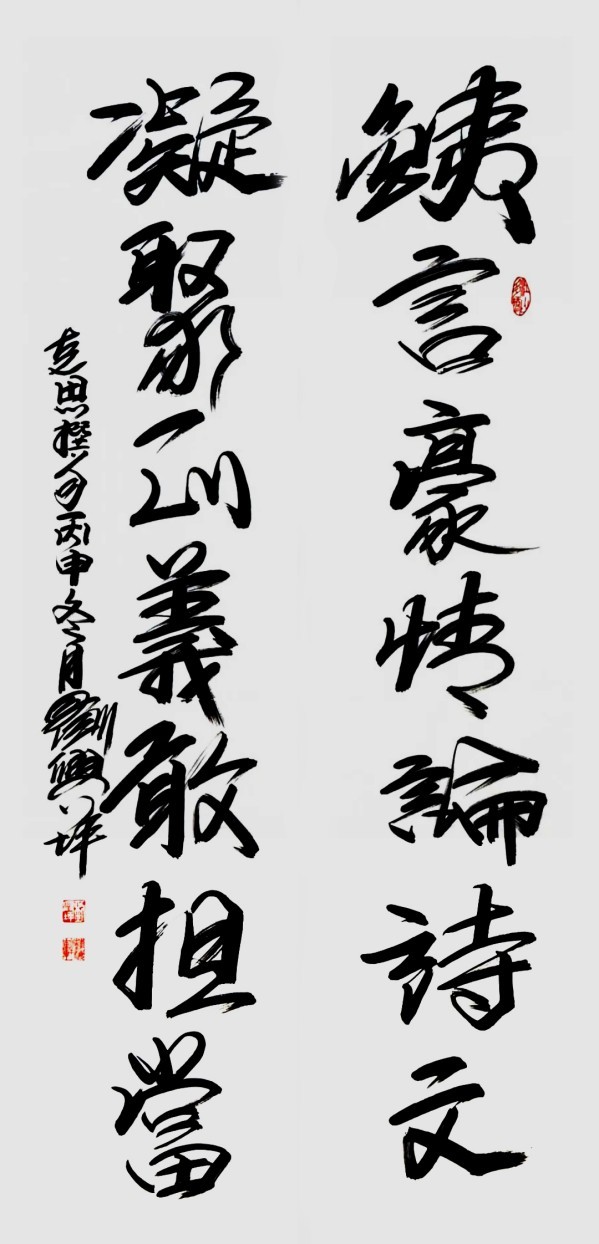 銕言豪情論詩文
凝聚義敢担當
思撰句丙申冬月劉興坪